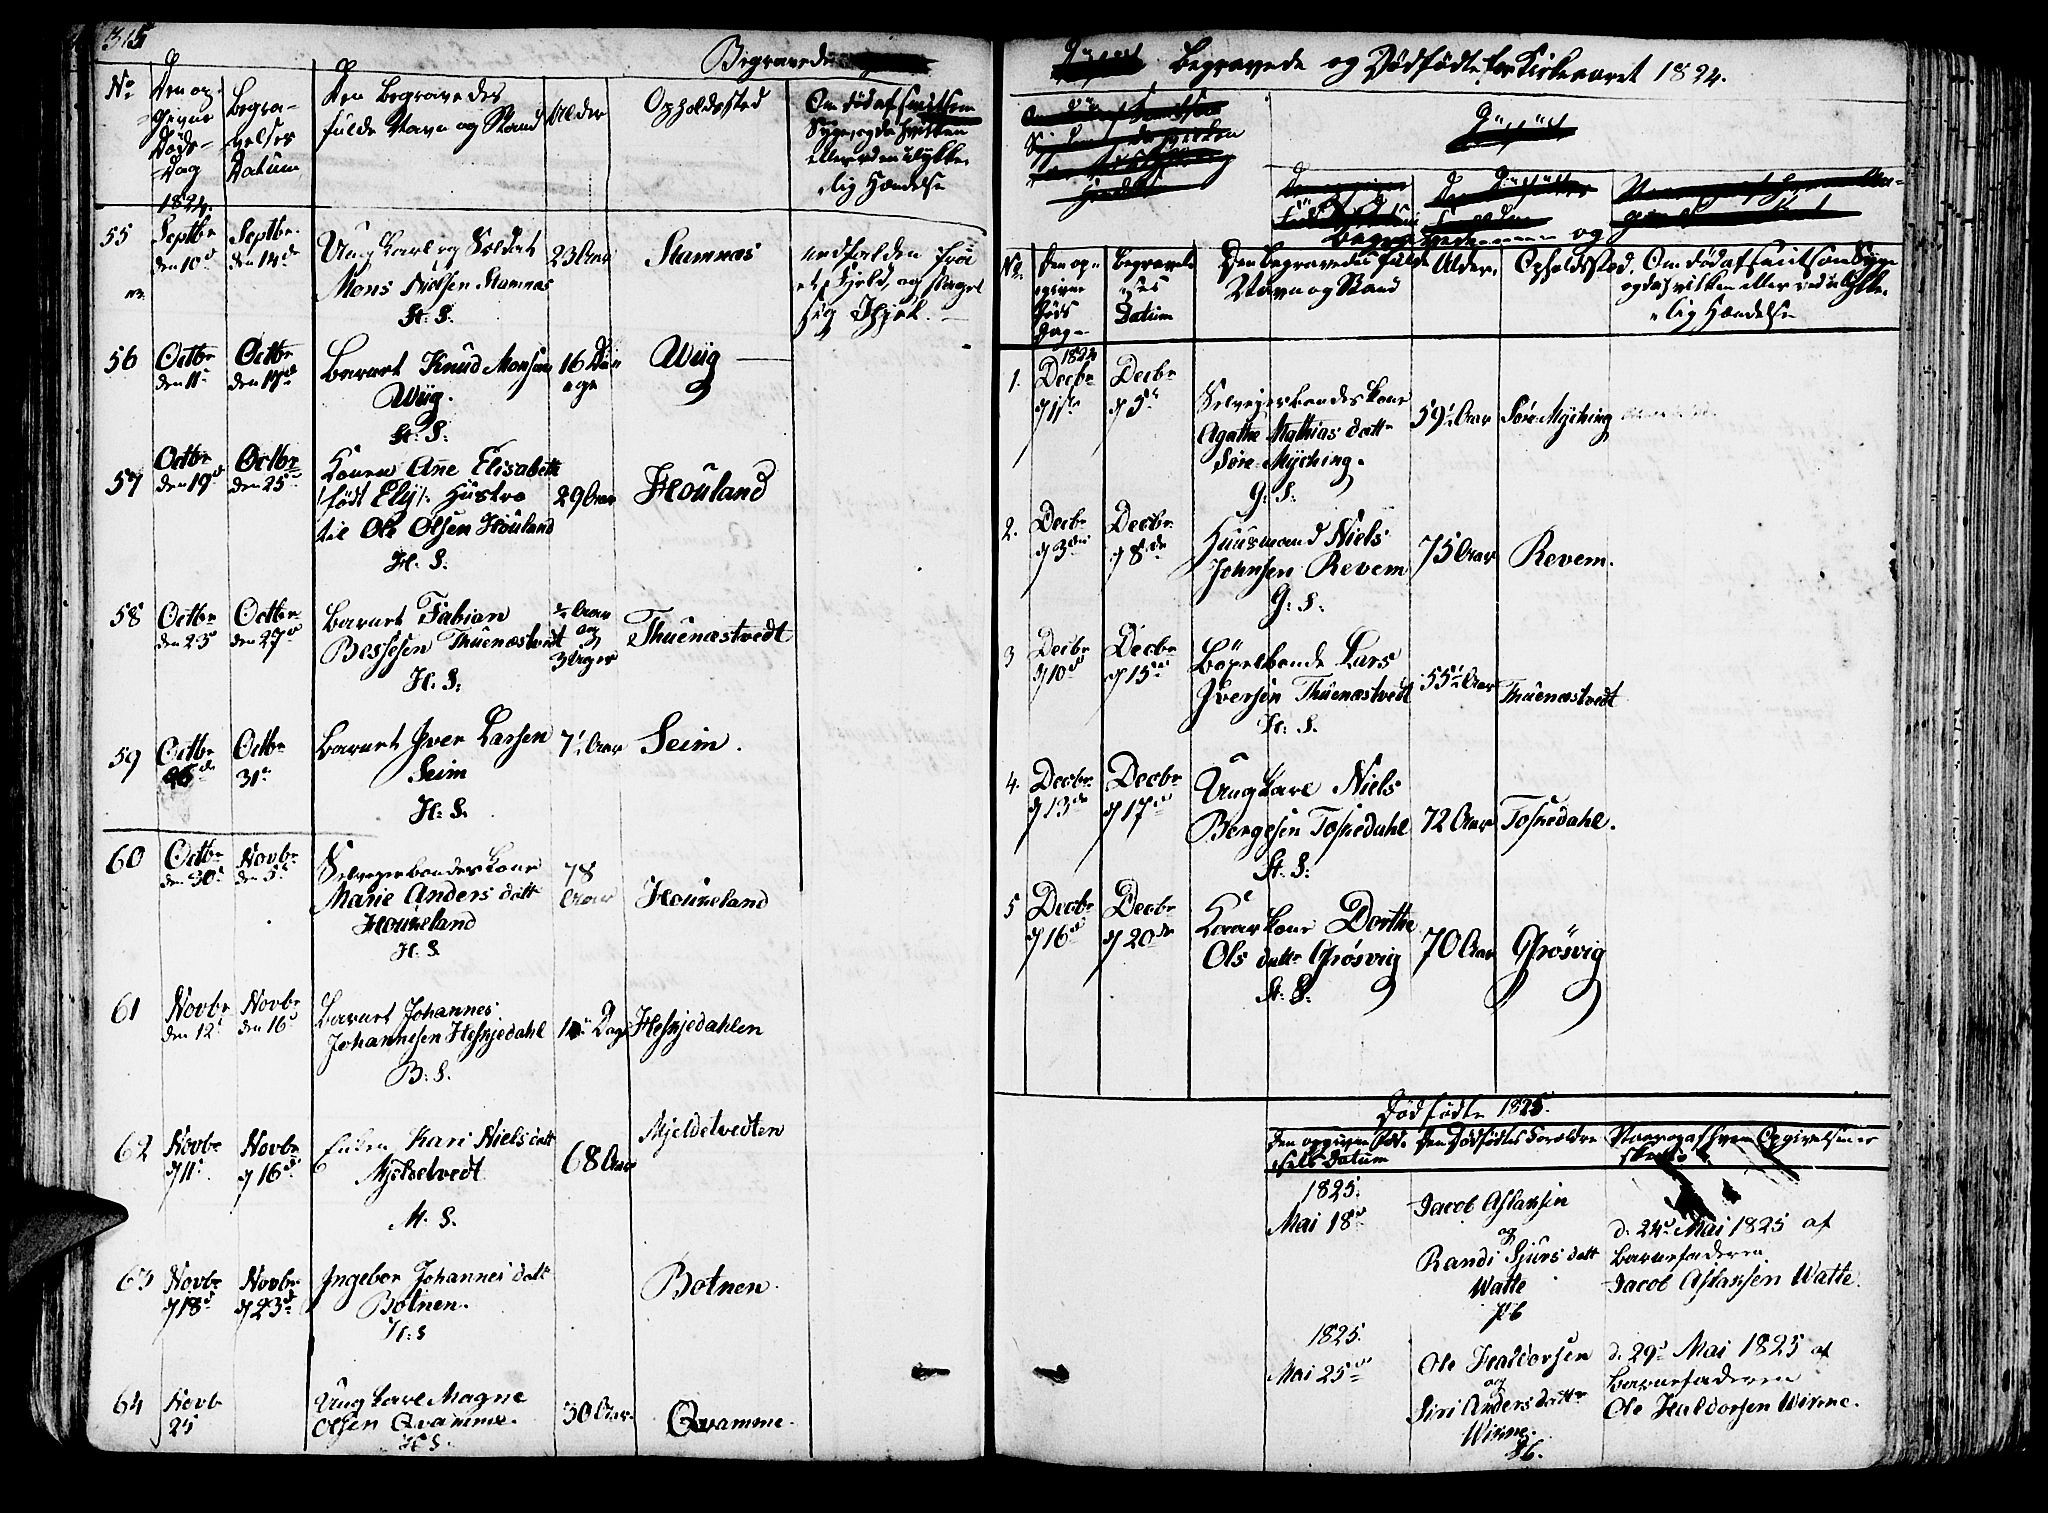 315
Begravede
No
Den op
givne
Døds-
Dag
1824.
Begra-
velses
Datum
Den Begravedes
fulde Navn og Stand
Alder
Opholdssted
Om død af smitsom
Syge, og da hvilken
eller ved en ulykke-
lig Hændelse
55
Septbr
den 10d
Septbr.
den 14de
Ung Karl og Soldat
Mons Nielsen Stamnæs
St: S.
23 Aar
Stamnæs
nedfalden fra
et Fjeld, og slaget
sig Ihjel.
56
Octbr
den 11te
Octbr
den 17d
Barnet Knud Monsen
Wiig.
St: S:
16
Wiig
57
Octbr
den 19d
Octbr
den 25d
Konen Ane Elisabeth
født Ely /: Hustro
til Ole Olsen Houland
H. S.
29 Aar
Houland
58
Octbr
den 23d
Octbr.
den 27d
Barnet Fabian
Bessesen Thuenæstvedt
H. S:
½ Aar
og
3 Uger
Thuenæstvedt
59
Octbr
Octbr
31te
Barnet Iver Larsen
Seim
H: S.
7½ Aar
Seim.
60
Octbr
den 30te
Novbr
den 5te
Selveierbondes Kone
Marie Anders datt
Houneland
H. S
78
Aar
Houneland
61
Novbr
den 12te
Novbr
den 16d
Barnet Johannes
Johannesen Hesjedahl
B: S.
Dage
Hesjedahlen
62
Novbr
d 11te
Novbr
d 16d
Enken Kari Niels datt
Mjeldetvedt
M. S.
68 Aar
Mjeldetvedten
63
Novbr
d 18d
Novbr
d 23d
Ingebor Johannes datt
Botnen.
H: S
Botnen.
64
Novb
25
Ung Karl Magne
Olsen Qvamme.
H S.
30 Aar.
Qvamme.
Begravede og Dødfødte for Kirkeaaret 1824.
Begravede
No.
Den op-
givne
Døds
Dag
Begravel
ses
Datum
Den Begravedes fulde
Navn og Stand
Alder.
Opholdssted.
Om død af smitsom Syge
og da hvilken eller ved ulykke-
lig Hændelse
1.
1824
Decbr
d 1ste
Decbr
d 5te
Selveierbondes Kone
Agathe Mathias datt
Søre Myching.
G: S:
59½ Aar
Søre Myching
2.
Decbr
d 3die
Decbr
d 8de
Huusmand Niels
Johnsen Revem
G: S.
75 Aar
Revem.
3
Decbr
d 10d
Decbr
d 15d
Lars
Iversen Thuenæstvedt
H: S.
55½ Aar
Thuenæstvedt
4.
Decbr
d 13de
Decbr
d 17d
Ung Karl Niels
Borgesen Toskedahl
St: S:
72 Aar
Toskedahl.
5
Decbr
d 16d
Decbr
d 20de
Kaar Kone Dorthe
Ols datter Grøsvig
St. S:
70 Aar
Grøsvig
Dødfødte 1825.
Den opgivne Føds-
sels Datum
Den Dødfødtes Forældre
Naar og af hvem Opgivelsen er
skeet
1825.
Mai 18d
Jacob Aslaksen
og
Randi Sjurs datt
Watte
d. 24d Mai 1825 af
Barnefaderen
Jacob Aslaksen Watte.
1825.
Mai 25de
Ole Haldorsen
og
Siri Anders datter
Wirme.
d. 29d Mai 1825 af
Barnefaderen
Ole Haldorsen Wirme.